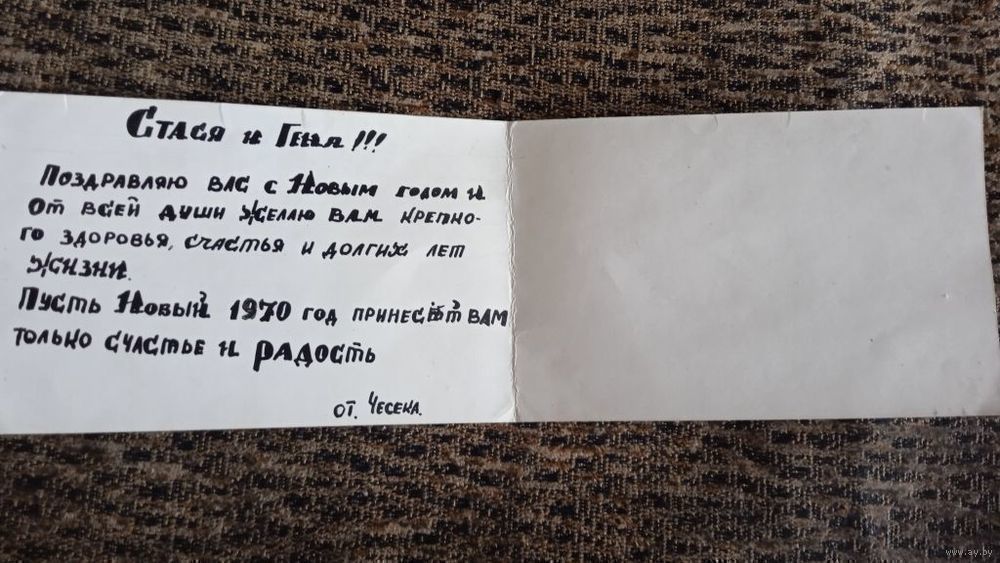 Стася и Геня!!!
Поздравляю вас с Новым годом и
от всей души желаю вам крепко-
го здоровья, счастья и долгих лет
жизни.
Пусть Новый 1970 год принесёт вам
только счастье и радость
от. Чесека.
www.ay.by